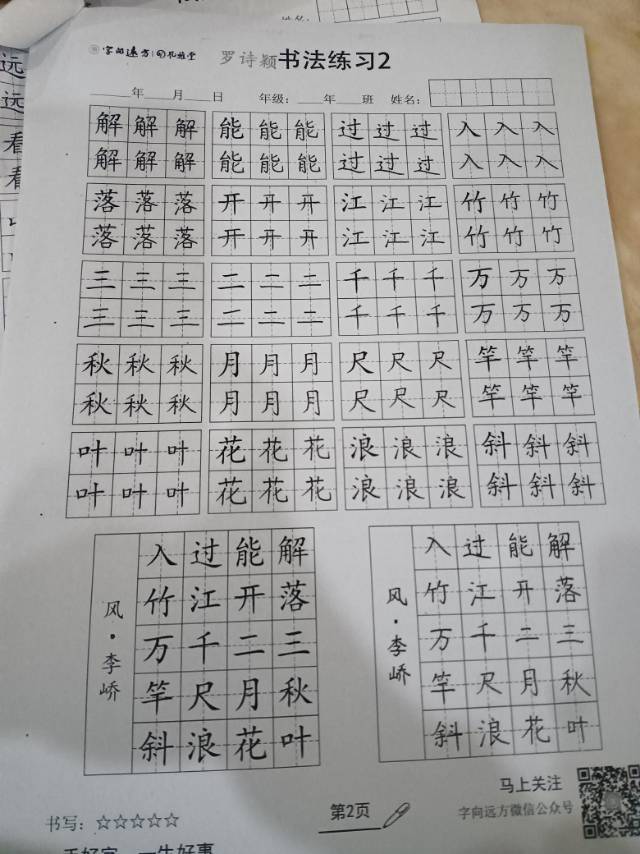 字向远方
罗诗颖书法练习2
年 月 日 年级： 年 班 姓名：
解解解 能能能 过过过 入入入
解解解 能能能 过过过 入入入
落落落 开开开 江江江 竹竹竹
落落落 开开开 江江江 竹竹竹
三三三 二二二 千千千 万万万
三三三 二二二 千千千 万万万
秋秋秋 月月月 尺尺尺 竿竿竿
秋秋秋 月月月 尺尺尺 竿竿竿
叶叶叶 花花花 浪浪浪 斜斜斜
叶叶叶 花花花 浪浪浪 斜斜斜
风·李峤
入过能解
竹江开落
万千二三
竿尺月秋
斜浪花叶
风·李峤
入过能解
竹江开落
万千二三
竿尺月秋
斜浪花叶
书写：☆☆☆☆☆
第2页
马上关注
字向远方微信公众号
手好字，一生好事
远
远
看
看